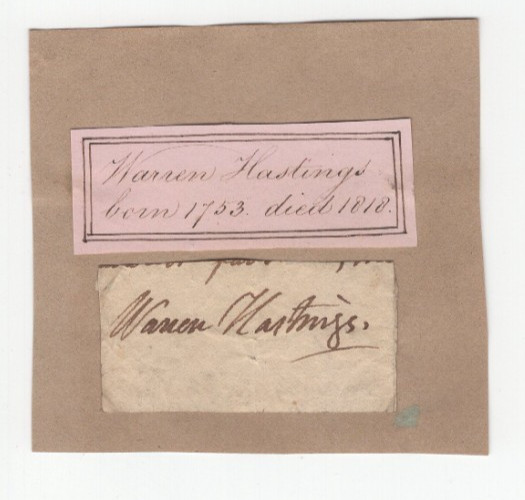 Warren Hastings
born 1753. died 1818.
Warren Hastings.